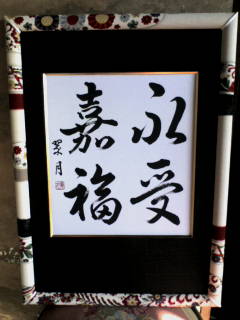 永受
嘉福
翠月